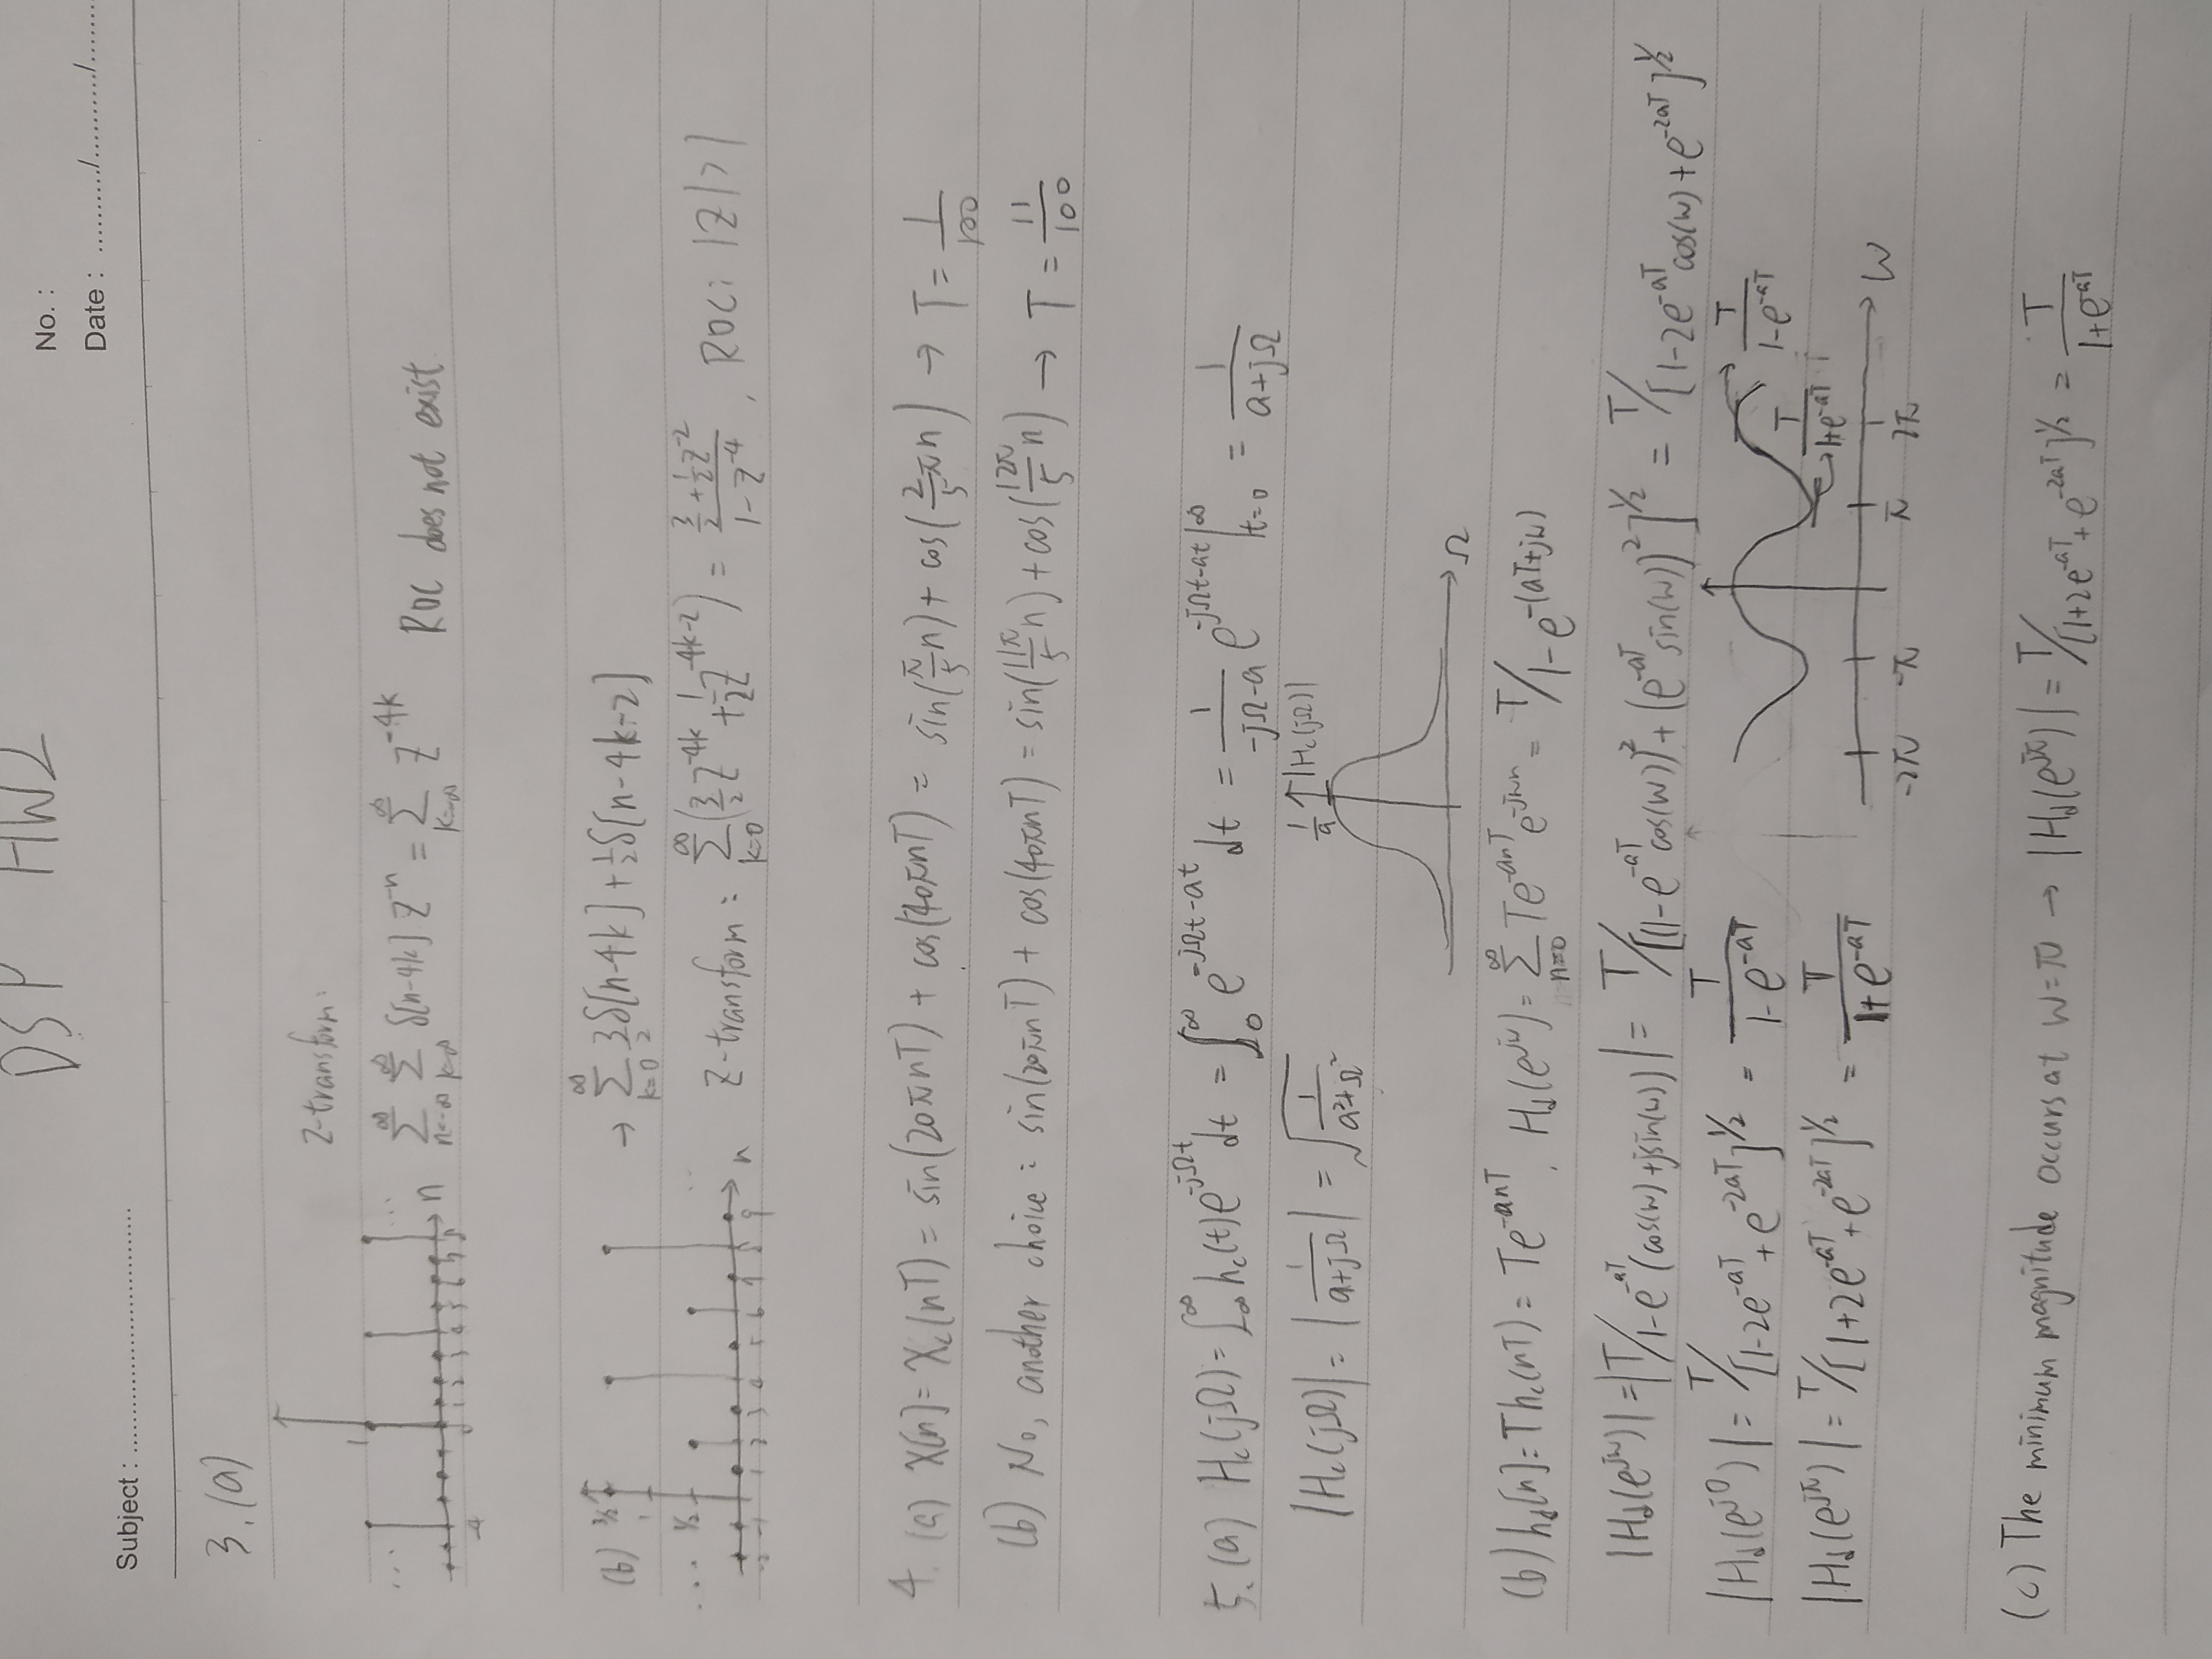 DSP HW2
No. :
Date : ........../........../.......
Subject : ................................
3. (a)
Z-transform:
1
... ... n
-4 0 1 2 3 4 5 6 7 8
∑_{n=-∞}^{∞} ∑_{k=-∞}^{∞} δ[n-4k] z^{-n} = ∑_{k=-∞}^{∞} z^{-4k} ROC does not exist
(b) 3/2 1 1/2
... ... n
-2 -1 1 2 3 4 5 6 7 8 9
→ ∑_{k=0}^{∞} 3/2 δ[n-4k] + 1/2 δ[n-4k-2]
Z-transform : ∑_{k=0}^{∞} (3/2 z^{-4k} + 1/2 z^{-4k-2}) = (3/2 + 1/2 z^{-2})/(1 - z^{-4}) , ROC: |z|>1
4. (a) x[n] = x_c(nT) = sin(20πnT) + cos(40πnT) = sin(π/5 n) + cos(2/5 πn) → T = 1/100
(b) No, another choice : sin(20πnT) + cos(40πnT) = sin(11π/5 n) + cos(12π/5 n) → T = 11/100
5. (a) H_c(jΩ) = ∫_{-∞}^{∞} h_c(t) e^{-jΩt} dt = ∫_0^∞ e^{-jΩt-at} dt = 1/(-jΩ-a) e^{-jΩt-at} |_{t=0}^{∞} = 1/(a+jΩ)
|H_c(jΩ)| = |1/(a+jΩ)| = √(1/(a²+Ω²))
1/a |H_c(jΩ)|
Ω
(b) h_d[n] = T h_c(nT) = Te^{-anT} , H_d(e^{jw}) = ∑_{n=0}^{∞} Te^{-anT} e^{-jwn} = T/1-e^{-(aT+jw)}
|H_d(e^{jw})| = |T/1-e^{-aT}(cos(w)+jsin(w))| = T/[(1-e^{-aT}cos(w))² + (e^{-aT}sin(w))²]^{1/2} = T/[1-2e^{-aT}cos(w)+e^{-2aT}]^{1/2}
|H_d(e^{j0})| = T/[1-2e^{-aT}+e^{-2aT}]^{1/2} = T/(1-e^{-aT})
|H_d(e^{jπ})| = T/[1+2e^{-aT}+e^{-2aT}]^{1/2} = T/(1+e^{-aT})
T/(1-e^{-aT})
T/(1+e^{-aT})
w
-2π -π π 2π
(c) The minimum magnitude occurs at w=π → |H_d(e^{jπ})| = T/[1+2e^{-aT}+e^{-2aT}]^{1/2} = T/(1+e^{-aT})